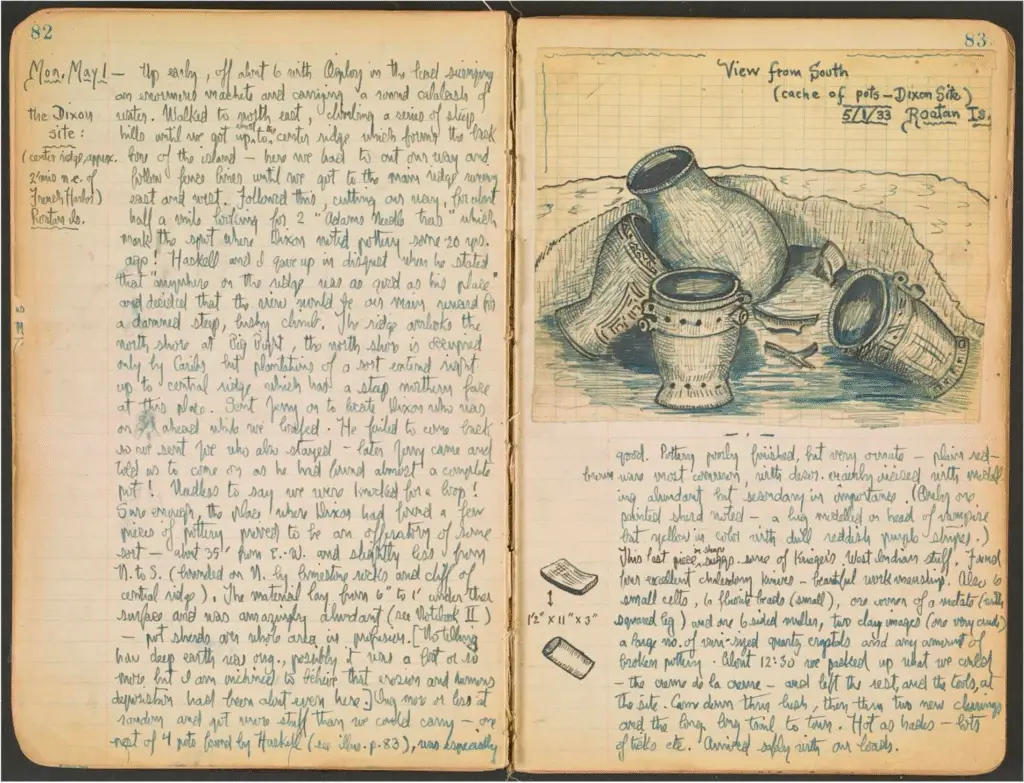 82
Mon. May 1 — Up early, off about 6 with Digby in the lead swinging
an enormous machete and carrying a round calabash of
water. Walked to north east, climbing a series of steep
hills until we got up to the center ridge which forms the back
bone of the island — here we had to cut our way and
follow fence lines until we got to the main ridge running
east and west. Followed this, cutting our way, for about
half a mile looking for 2 "Adams Needle trees" which
mark the spot where Dixon noted pottery some 20 yrs.
ago! Haskell and I gave up in disgust when he stated
that "anywhere on the ridge was as good as his place"
and decided that the view would be our main reward for
a damned steep, bushy climb. The ridge overlooks the
north shore at Big Bight, the north shore is occupied
only by Caribs but plantations of a sort extend right
up to central ridge which has a steep northern face
at this place. Sent Jerry on to locate Dixon who was
on ahead while we loafed. He failed to come back
so we sent Joe who also stayed — later Jerry came and
told us to come on as he had found almost a complete
pot! Needless to say we were knocked for a loop!
Sure enough, the place where Dixon had found a few
pieces of pottery proved to be an offertory of some
sort — about 35' from E.-W. and slightly less from
N. to S. (bounded on N. by limestone rocks and cliff of
central ridge). The material lay from 6" to 1' under the
surface and was amazingly abundant (see Notebook II)
— pot sherds over whole area in profusion. [No telling
how deep earth was orig., possibly it was a foot or so
more but I am inclined to believe that erosion and humus
deposition had been about even here.] Dug more or less at
random and got more stuff than we could carry — one
nest of 4 pots found by Haskell (see illus. p. 83), was especially
the Dixon
site:
(center ridge, approx.
2 mis n.e. of
French Harbor)
Roatan Is.
83.
View from South
(cache of pots — Dixon Site)
5/1/33 Roatan Is.
good. Pottery poorly finished, but very ornate — plain red-
brown ware most common, with decor. crudely incised with modell
ing abundant but secondary in importance. (Only one
painted sherd noted — a lug modelled as head of vampire
bat yellow in color with dull reddish purple stripes.)
This last piece in shape sugg. some of Krieger's West Indian stuff. Found
four excellent chalcedony knives — beautiful workmanship. Also 6
small celts, 6 fluorite beads (small), one corner of a metate (with
squared leg) and one 6 sided muller, two clay images (one very crude)
a large no. of vari-sized quartz crystals and any amount of
broken pottery. About 12:30 we packed up what we could
— the creme de la creme — and left the rest, and the tools, at
the site. Came down thru bush, then thru two new clearings
and the long, long trail to town. Hot as hades — lots
of ticks etc. Arrived safely with our loads.
1½" × 11" × 3"